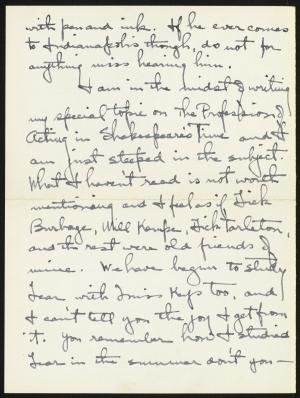 with pen and ink. If he ever comes
to Indianapolis though, do not for
anything miss hearing him.
I am in the midst of writing
my special topic on The Profession of
Acting in Shakespeare's Time and I
am just steeped in the subject.
What I haven't read is not worth
mentioning and I feel as if Dick
Burbage, Will Kempe, Dick Tarleton,
and the rest were old friends of
mine. We have begun to study
Lear with Miss Keys too, and
I can't tell you the joy I get from
it. You remember how I studied
Lear in the summer don't you —